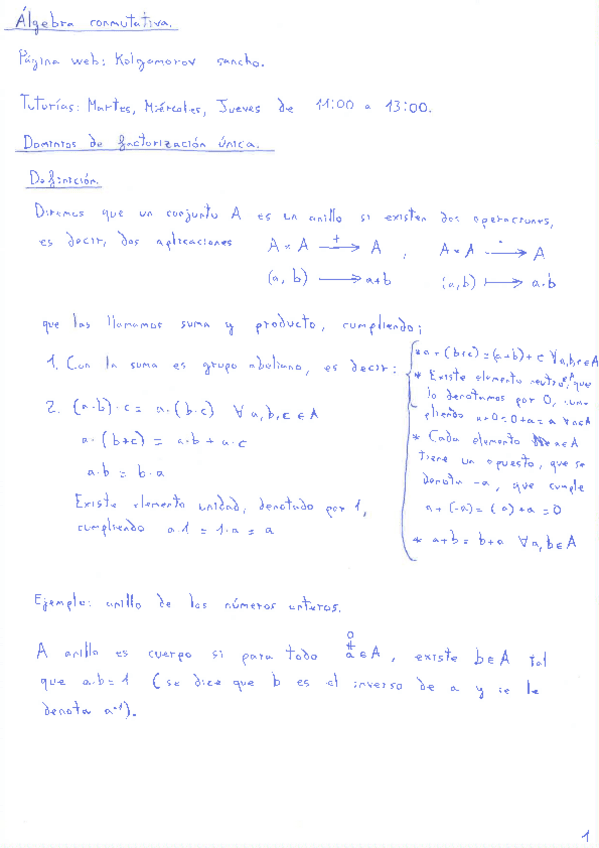 Álgebra conmutativa.
Página web: Kolgomorov sancho.
Tutorías: Martes, Miércoles, Jueves de 11:00 a 13:00.
Dominios de factorización única.
Definición.
Diremos que un conjunto A es un anillo si existen dos operaciones,
es decir, dos aplicaciones A × A —+→ A , A × A —·→ A
(a, b) ⟼ a+b (a,b) ⟼ a·b
que las llamamos suma y producto, cumpliendo:
1. Con la suma es grupo abeliano, es decir:
* a + (b+c) = (a+b) + c ∀a,b,c∈A
* Existe elemento neutro ∈A, que
lo denotamos por 0, cum-
pliendo a+0=0+a=a ∀a∈A
* Cada elemento a∈A
tiene un opuesto, que se
denota -a, que cumple
a+(-a)=(-a)+a=0
* a+b=b+a ∀a,b∈A
2. (a·b)·c = a·(b·c) ∀ a,b,c ∈ A
a·(b+c) = a·b + a·c
a·b = b·a
Existe elemento unidad, denotado por 1,
cumpliendo a·1 = 1·a = a
Ejemplo: anillo de los números enteros.
A anillo es cuerpo si para todo 0≠a∈A, existe b∈A tal
que a·b=1 (se dice que b es el inverso de a y se le
denota a⁻¹).
1